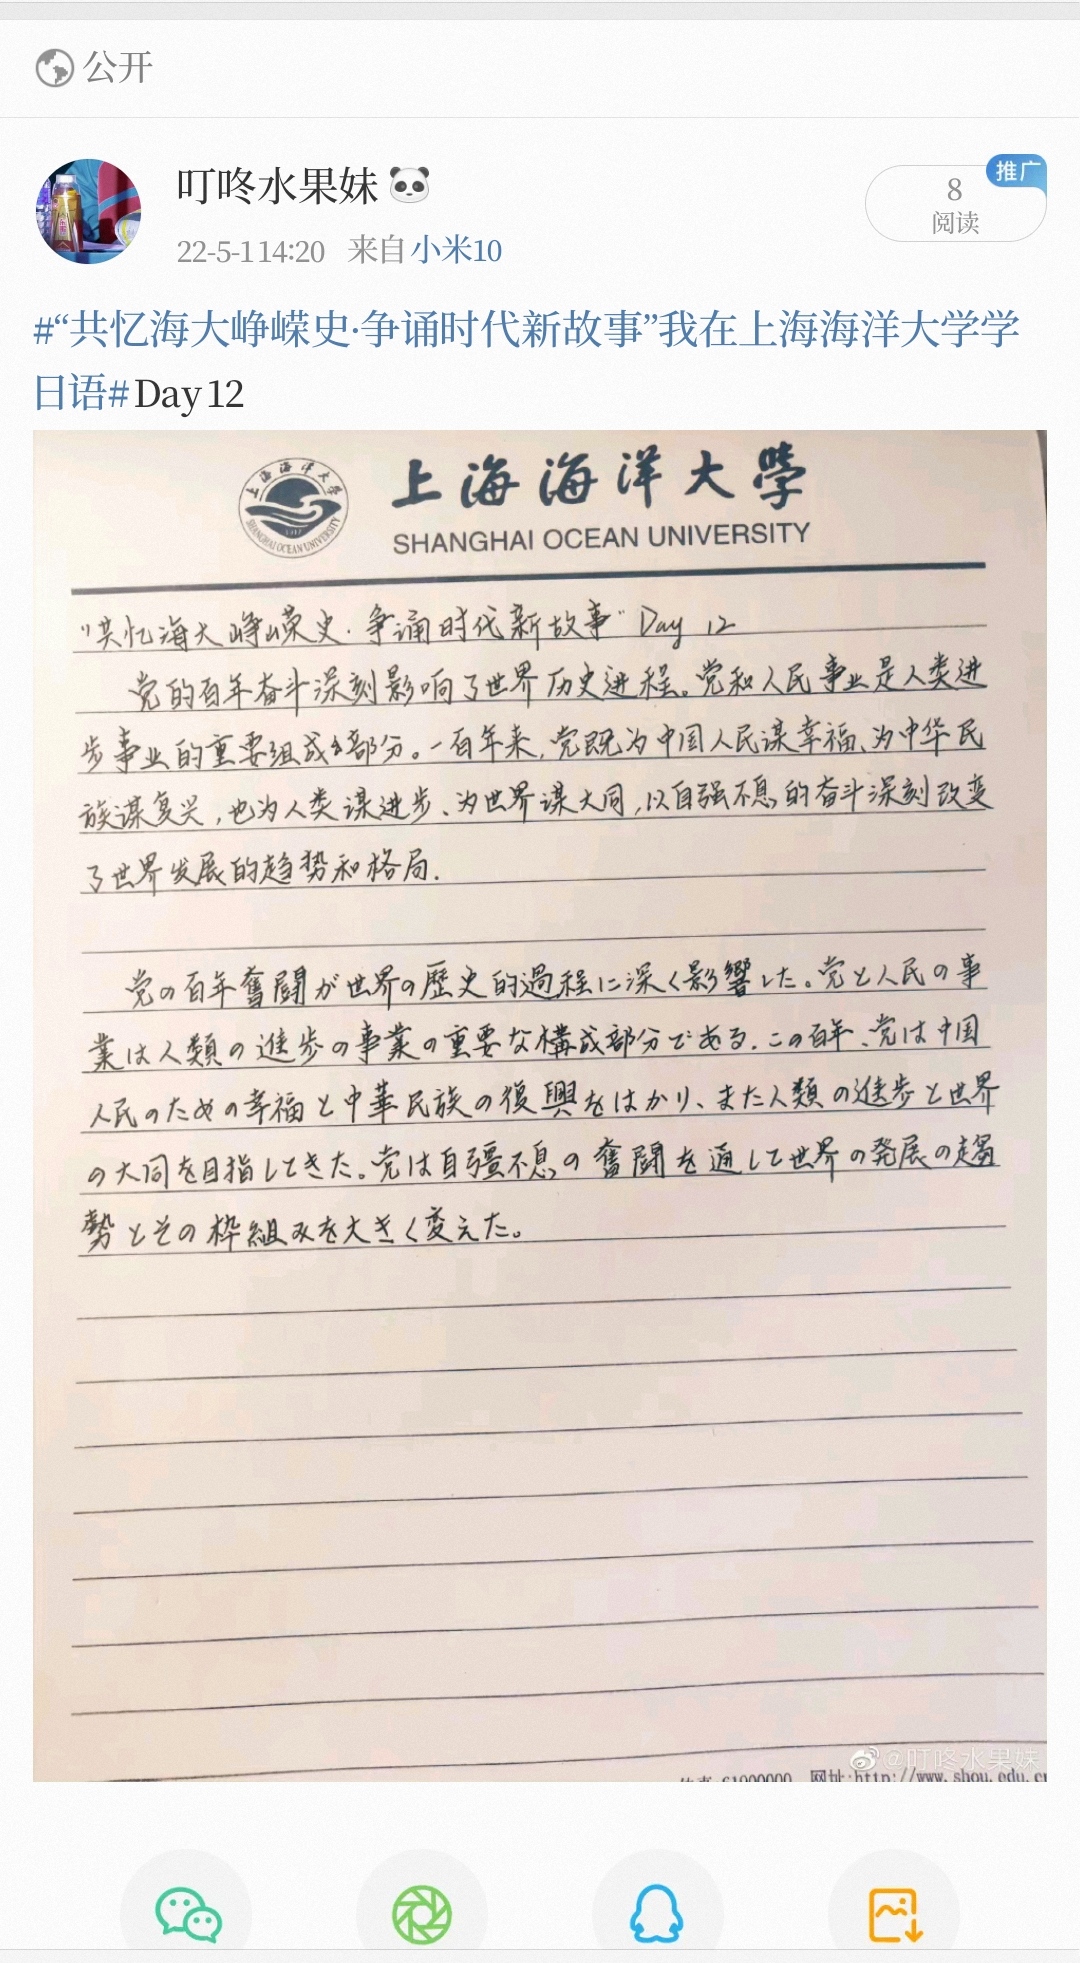 公开
叮咚水果妹
推广
8
阅读
22-5-1 14:20 来自 小米10
#“共忆海大峥嵘史·争诵时代新故事”我在上海海洋大学学
日语# Day 12
上海海洋大學
上海海洋大学
SHANGHAI OCEAN UNIVERSITY
1912
SHANGHAI OCEAN UNIVERSITY
“共忆海大峥嵘史·争诵时代新故事” Day 12
党的百年奋斗深刻影响了世界历史进程。党和人民事业是人类进
步事业的重要组成部分。一百年来,党既为中国人民谋幸福、为中华民
族谋复兴,也为人类谋进步、为世界谋大同,以自强不息的奋斗深刻改变
了世界发展的趋势和格局.
党の百年奮闘が世界の歴史的過程に深く影響した。党と人民の事
業は人類の進歩の事業の重要な構成部分である.この百年、党は中国
人民のための幸福と中華民族の復興をはかり、また人類の進歩と世界
の大同を目指してきた。党は自彊不息の奮闘を通して世界の発展の趨
勢とその枠組みを大きく変えた。
@叮咚水果妹
61900000 网址:http://www.shou.edu.cn